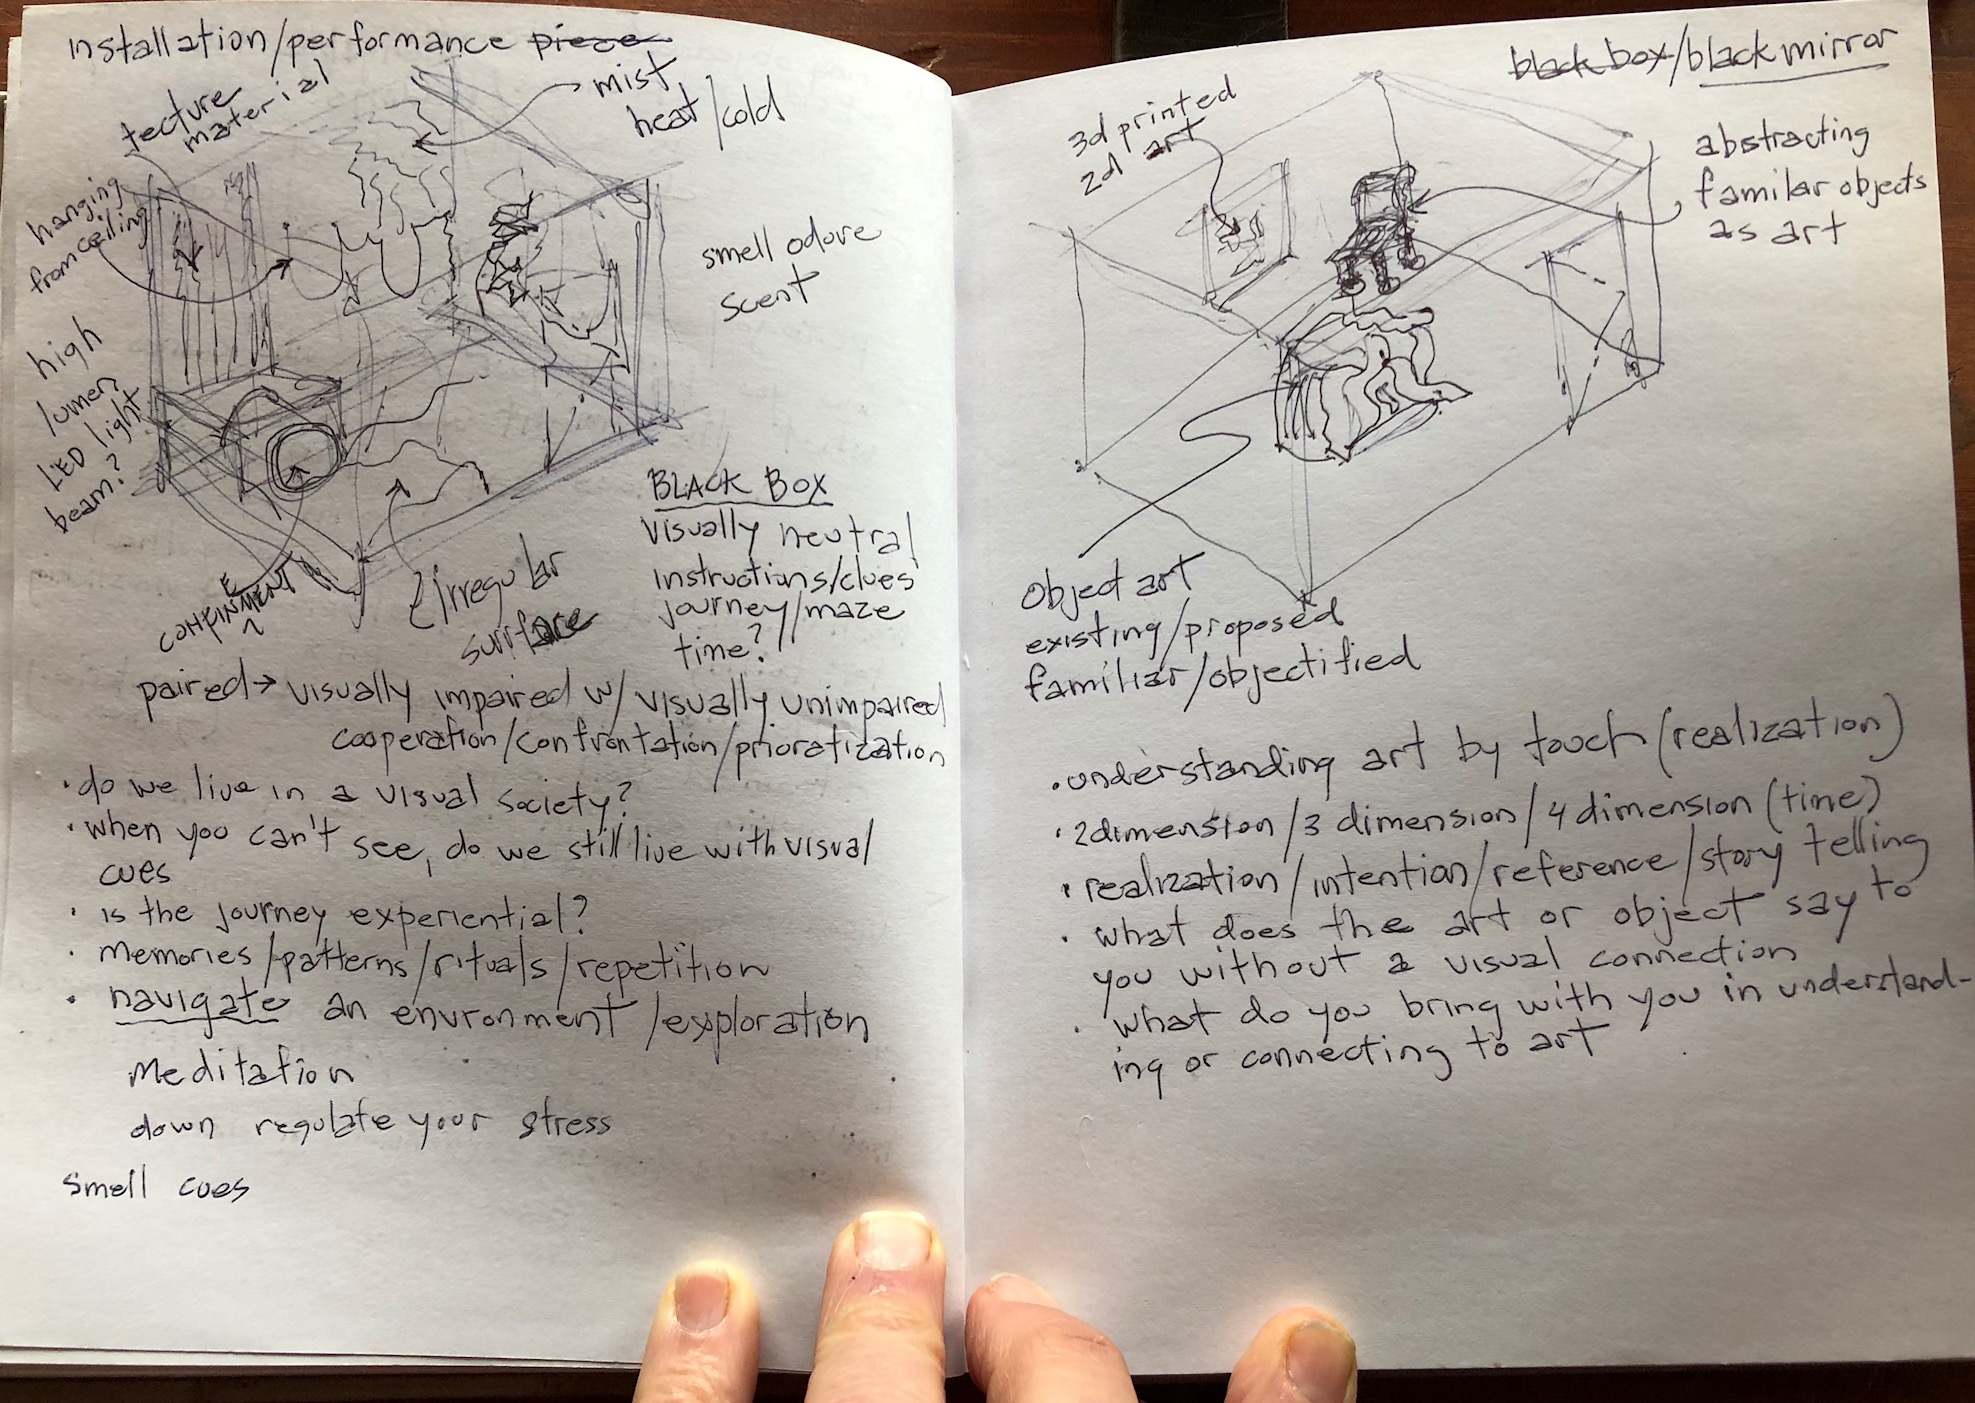 Installation/performance piece
tecture
material
mist
heat/cold
hanging
from ceiling
smell odore
scent
high
lumen
LED light
beam?
CONFINEMENT
irregular
surface
BLACK BOX
visually neutral
instructions/clues
journey/maze
time?
paired→ visually impaired w/ visually unimpaired
cooperation/confrontation/prioratization
· do we live in a visual society?
· when you can't see, do we still live with visual
cues
· is the journey experiential?
· memories/patterns/rituals/repetition
· navigate an environment/exploration
meditation
down regulate your stress
smell cues
black box/black mirror
3d printed
2d art
abstracting
familar objects
as art
Object art
existing/proposed
familiar/objectified
· understanding art by touch (realization)
· 2 dimension/3 dimension/4 dimension (time)
· realization/intention/reference/story telling
· what does the art or object say to
you without a visual connection
· what do you bring with you in understand-
ing or connecting to art